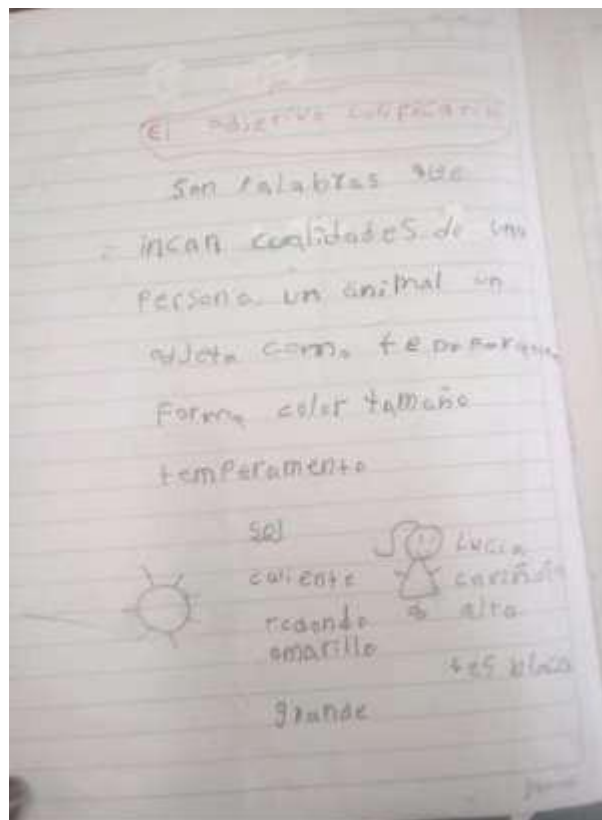 El adjetivo calificativo
Son Palabras que
incan cualidades de una
Persona un animal un
como
Forma color tamaño
temperamento
sol
caliente
redondo
amarillo
grande
Lucia
cariñosa
alta
tes blaca